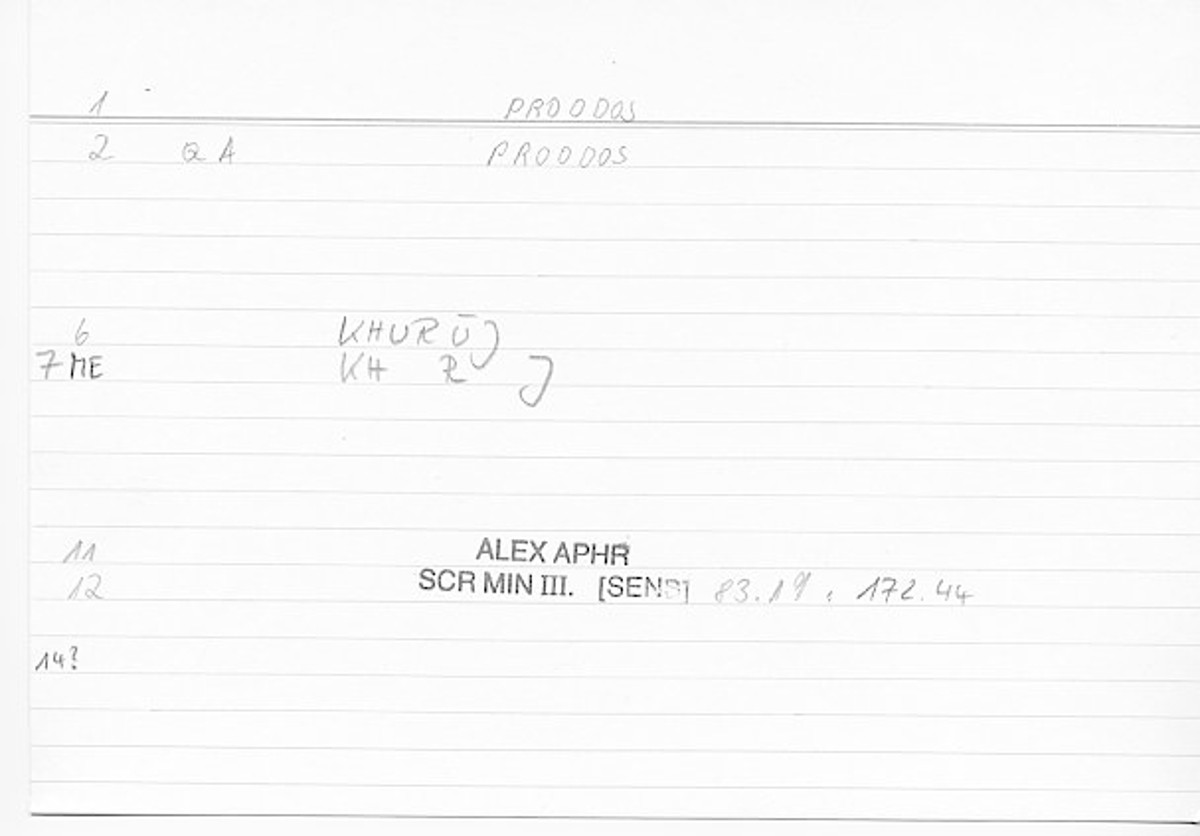 1 PROODOS
2 QA PROODOS
6 KHURŪJ
7 ME KH R J
11 ALEX APHR
12 SCR MIN III. [SENS] 83.19 , 172.44
14?